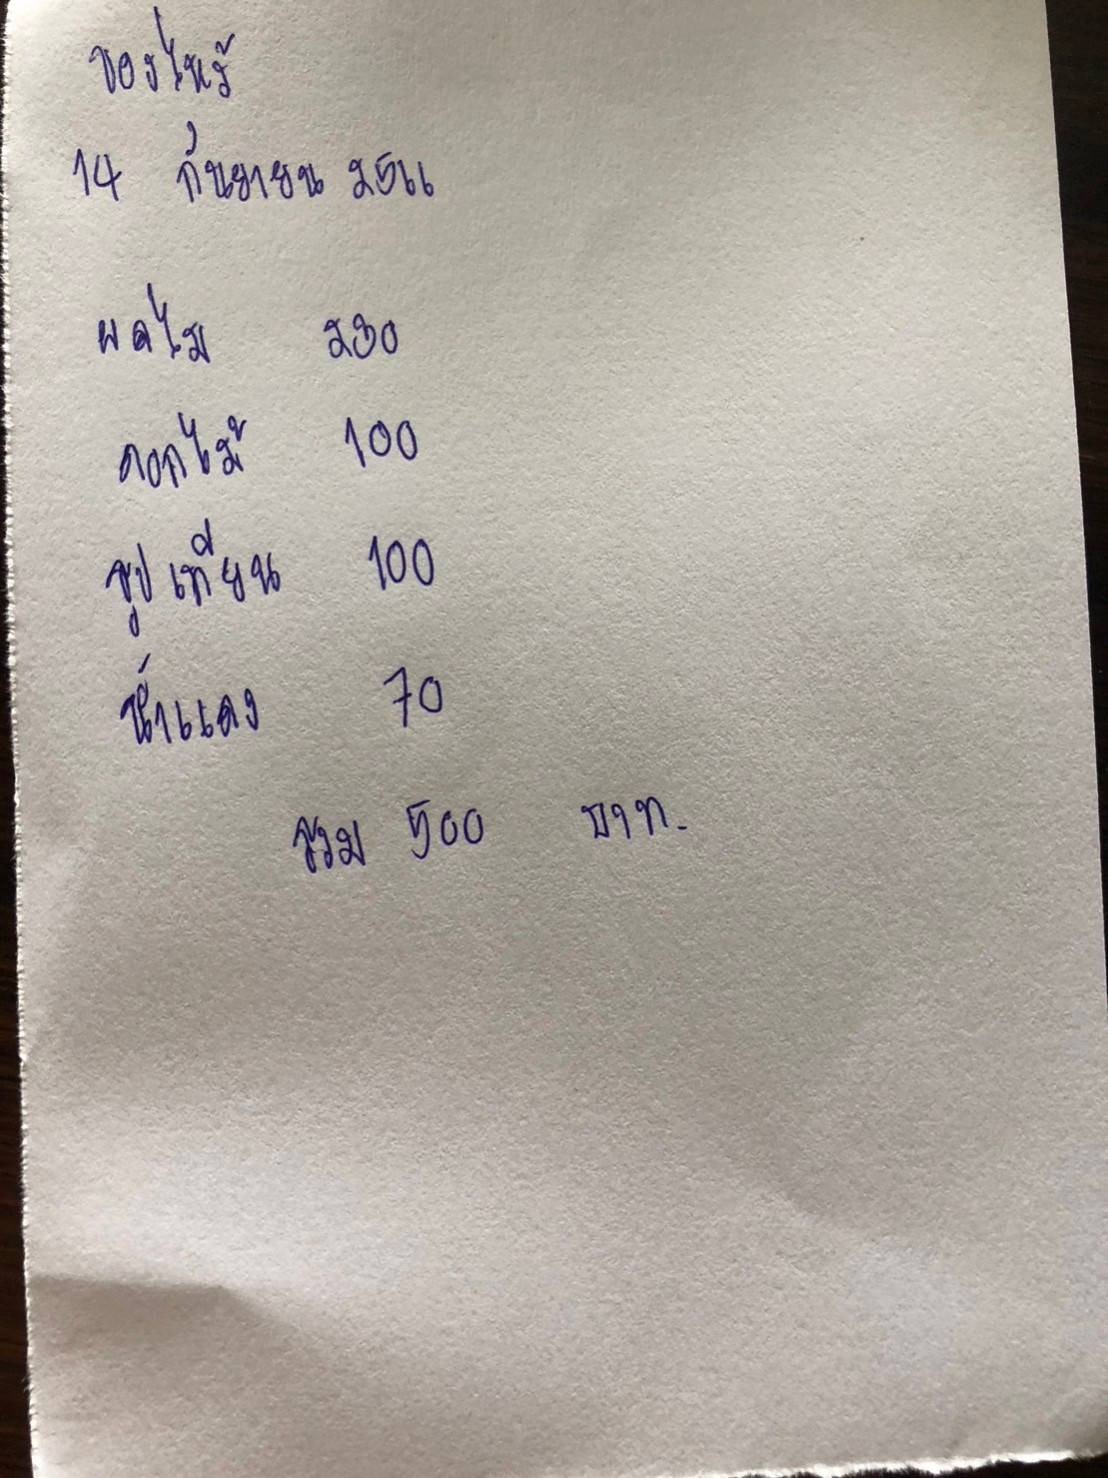 ของไหว้
14 กันยายน 2566
ผลไม้ 230
ดอกไม้ 100
ธูปเทียน 100
น้ำแดง 70
รวม 500 บาท.